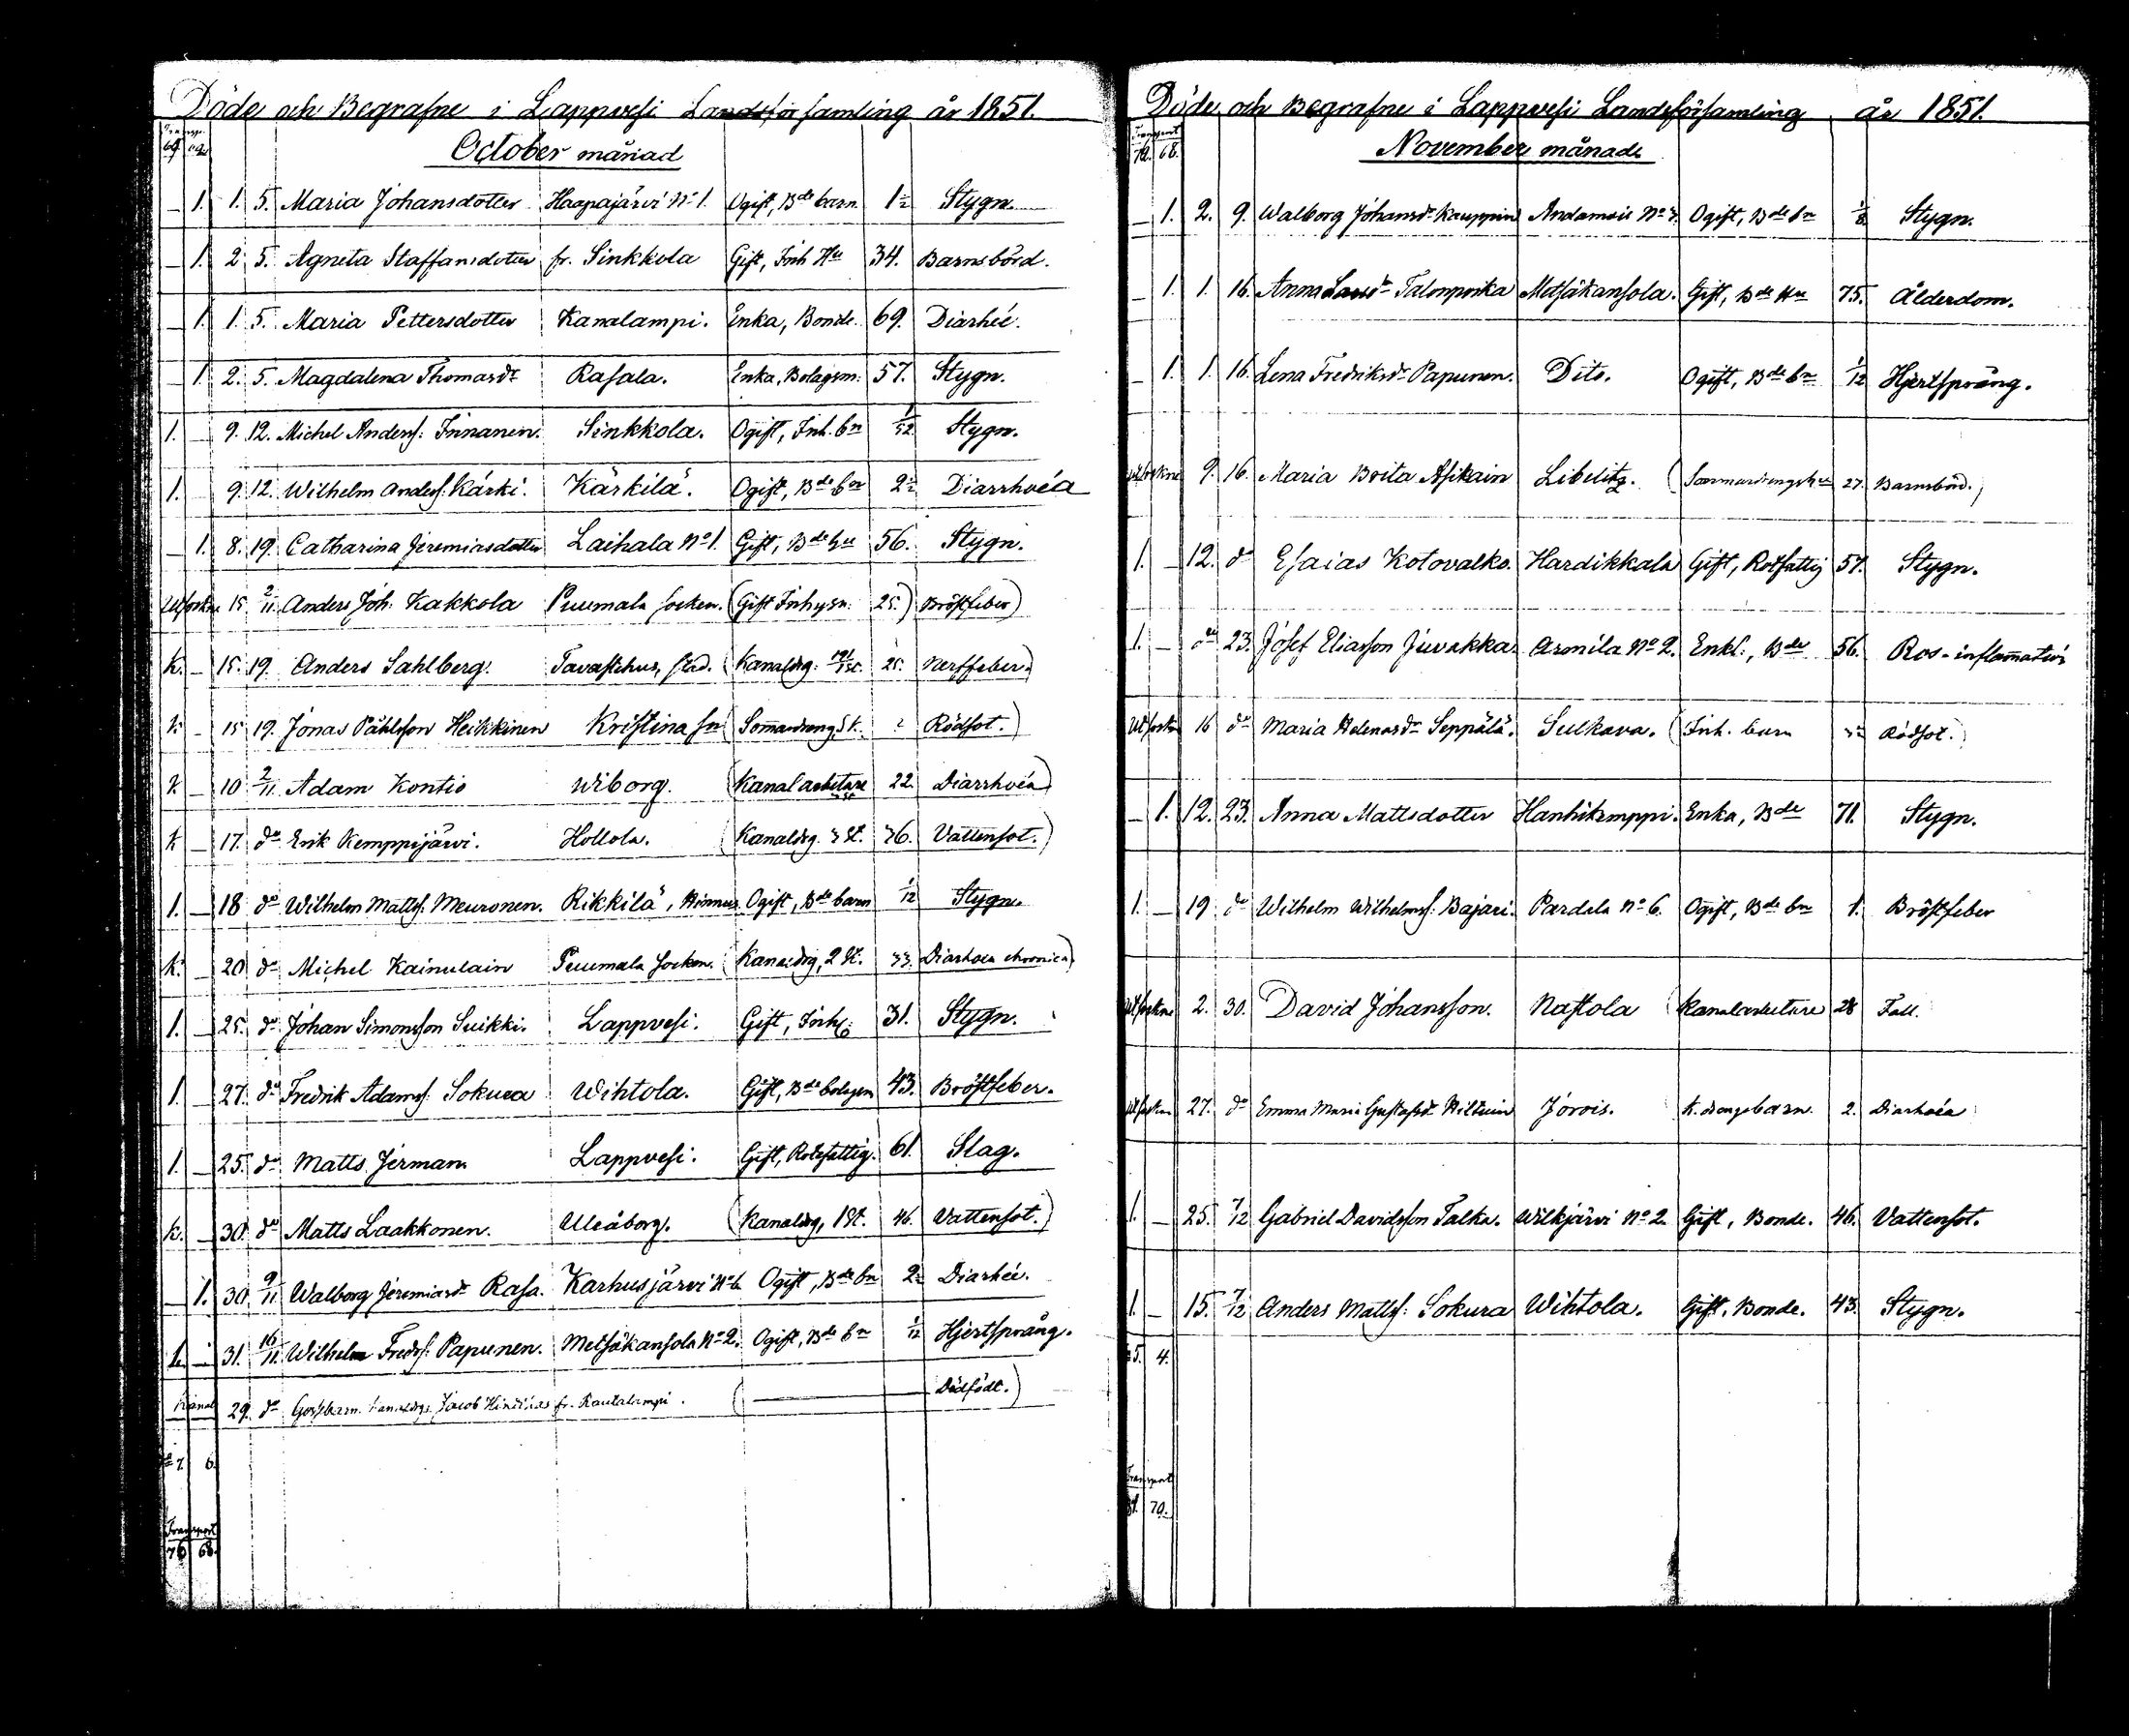 Döde och Begrafne i Lappvesi Landsförsamling år 1851.
October månad
1. 1. 5. Maria Johansdotter Haapajärvi No 1. Ogift, Bde barn 1½ Stygn.
1. 2. 5. Agneta Staffansdotter fr. Sinkkola Gift, Inh Hu 34. Barnsbörd.
1. 1. 5. Maria Pettersdotter Kanalampi. Enka, Bonde. 69. Diarhée.
1. 2. 5. Magdalena Thomasdr Rasala. Enka, Bolagsm. 57. Stygn.
1. 9. 12. Michel Anderss: Innanen. Sinkkola. Ogift, Inh. bn 1/52 Stygn.
1. 9. 12. Wilhelm Anderss: Kärki. Kärkilä. Ogift, Bde bn 2½ Diarrhoéa
1. 8. 19. Catharina Jeremiasdotter Laihala No 1. Gift, Bde hu 56. Stygn.
Utsockne 15. 2/11 Anders Joh: Kakkola Puumala socken. (Gift Inhysn: 25.) Bröstfeber)
K. 15. 19. Anders Sahlberg. Tavastehus, stad. (Kanaldrg: 25. Nerffeber.)
K 15 19. Jonas Påhlsson Heikkinen Kristina sn Rödsot.)
K 10 2/11 Adam Kontio Wiborg. (Kanalarbetare 22. Diarrhoéa)
K 17. do Erik Kemppijärvi. Hollola. (Kanaldrg. 3 St. 36. Vattensot.)
1. 18 do Wilhelm Mattss: Meuronen. Rikkilä, Ogift, Bde barn 1/12 Stygn.
K. 20 do Michel Kainulain Puumala Socken. (Kanaldrg, 2 St. 33. Diarhoea chronica)
1. 25. do Johan Simonsson Suikki. Lappvesi. Gift, Inh: 31. Stygn.
1. 27. do Fredrik Adamss: Sokura Wihtola. Gift, Bde bolagsm 43. Bröstfeber.
1. 25. do Matts Jerman Lappvesi. Gift, Rotefattig. 61. Slag.
K. 30. do Matts Laakkonen. Uleåborg. (Kanaldrg, 1 St. 46. Vattensot.)
1. 30. 9/11 Walborg Jeremiasdr Rasa. Karhusjärvi No 6 Ogift, Bde bn 2½ Diarhée.
1. 31. 16/11 Wilhelm Fredrs: Papunen. Metsäkansola No 2. Ogift, Bde bn 1/12 Hjertsprång.
Kanal 29. do Gossbarn. Kanaldrgs. Jacob fr. Rautalampi. ( Dödfödt.)
7 6.
Transport
76 68.
Döde och Begrafne i Lappvesi Landsförsamling år 1851.
Transport
76. 68.
November månad
1. 2. 9. Walborg Johansdr Kauppin Ogift, Bde bn Stygn.
1. 1. 16. Anna Talonpoika Metsäkansola. Gift, Bde Hu 75. Ålderdom.
1. 1. 16. Lena Fredriksdr Papunen. Dito. Ogift, Bde bn 1/12 Hjertsprång.
Utsockne 9. 16. Maria Brita Asikain Libelitz. 27. Barnsbörd.)
1. 12. do Esaias Kotovalko. Hardikkala Gift, Rotfattig 57. Stygn.
1. do 23. Josef Eliasson Juvakka Armila No 2. Enkl:, Bde 56. Ros-inflamation
Utsockne 16 do Maria Helenasdr Seppälä. Sulkava. (Inh. barn Rödsot.)
1. 12. 23. Anna Mattsdotter Hanhikemppi. Enka, Bde 71. Stygn.
1. 19 do Wilhelm Wilhelmss: Bajari. Pardala No 6. Ogift, Bde bn 1. Bröstfeber
Utsockne 2. 30. David Johansson. Nastola Kanalarbetare 28 Fall.
Utsockne 27. do Emma Maria Gustafsdr Hiltuin Jorois. K. drengs barn. 2. Diarhoéa
1. 25. 7/12 Gabriel Davidsson Talka. Wilkjärvi No 2. Gift, Bonde. 46. Vattensot.
1. 15. 7/12 Anders Mattss: Sokura Wihtola. Gift, Bonde. 43. Stygn.
5. 4.
Transport
81. 70.